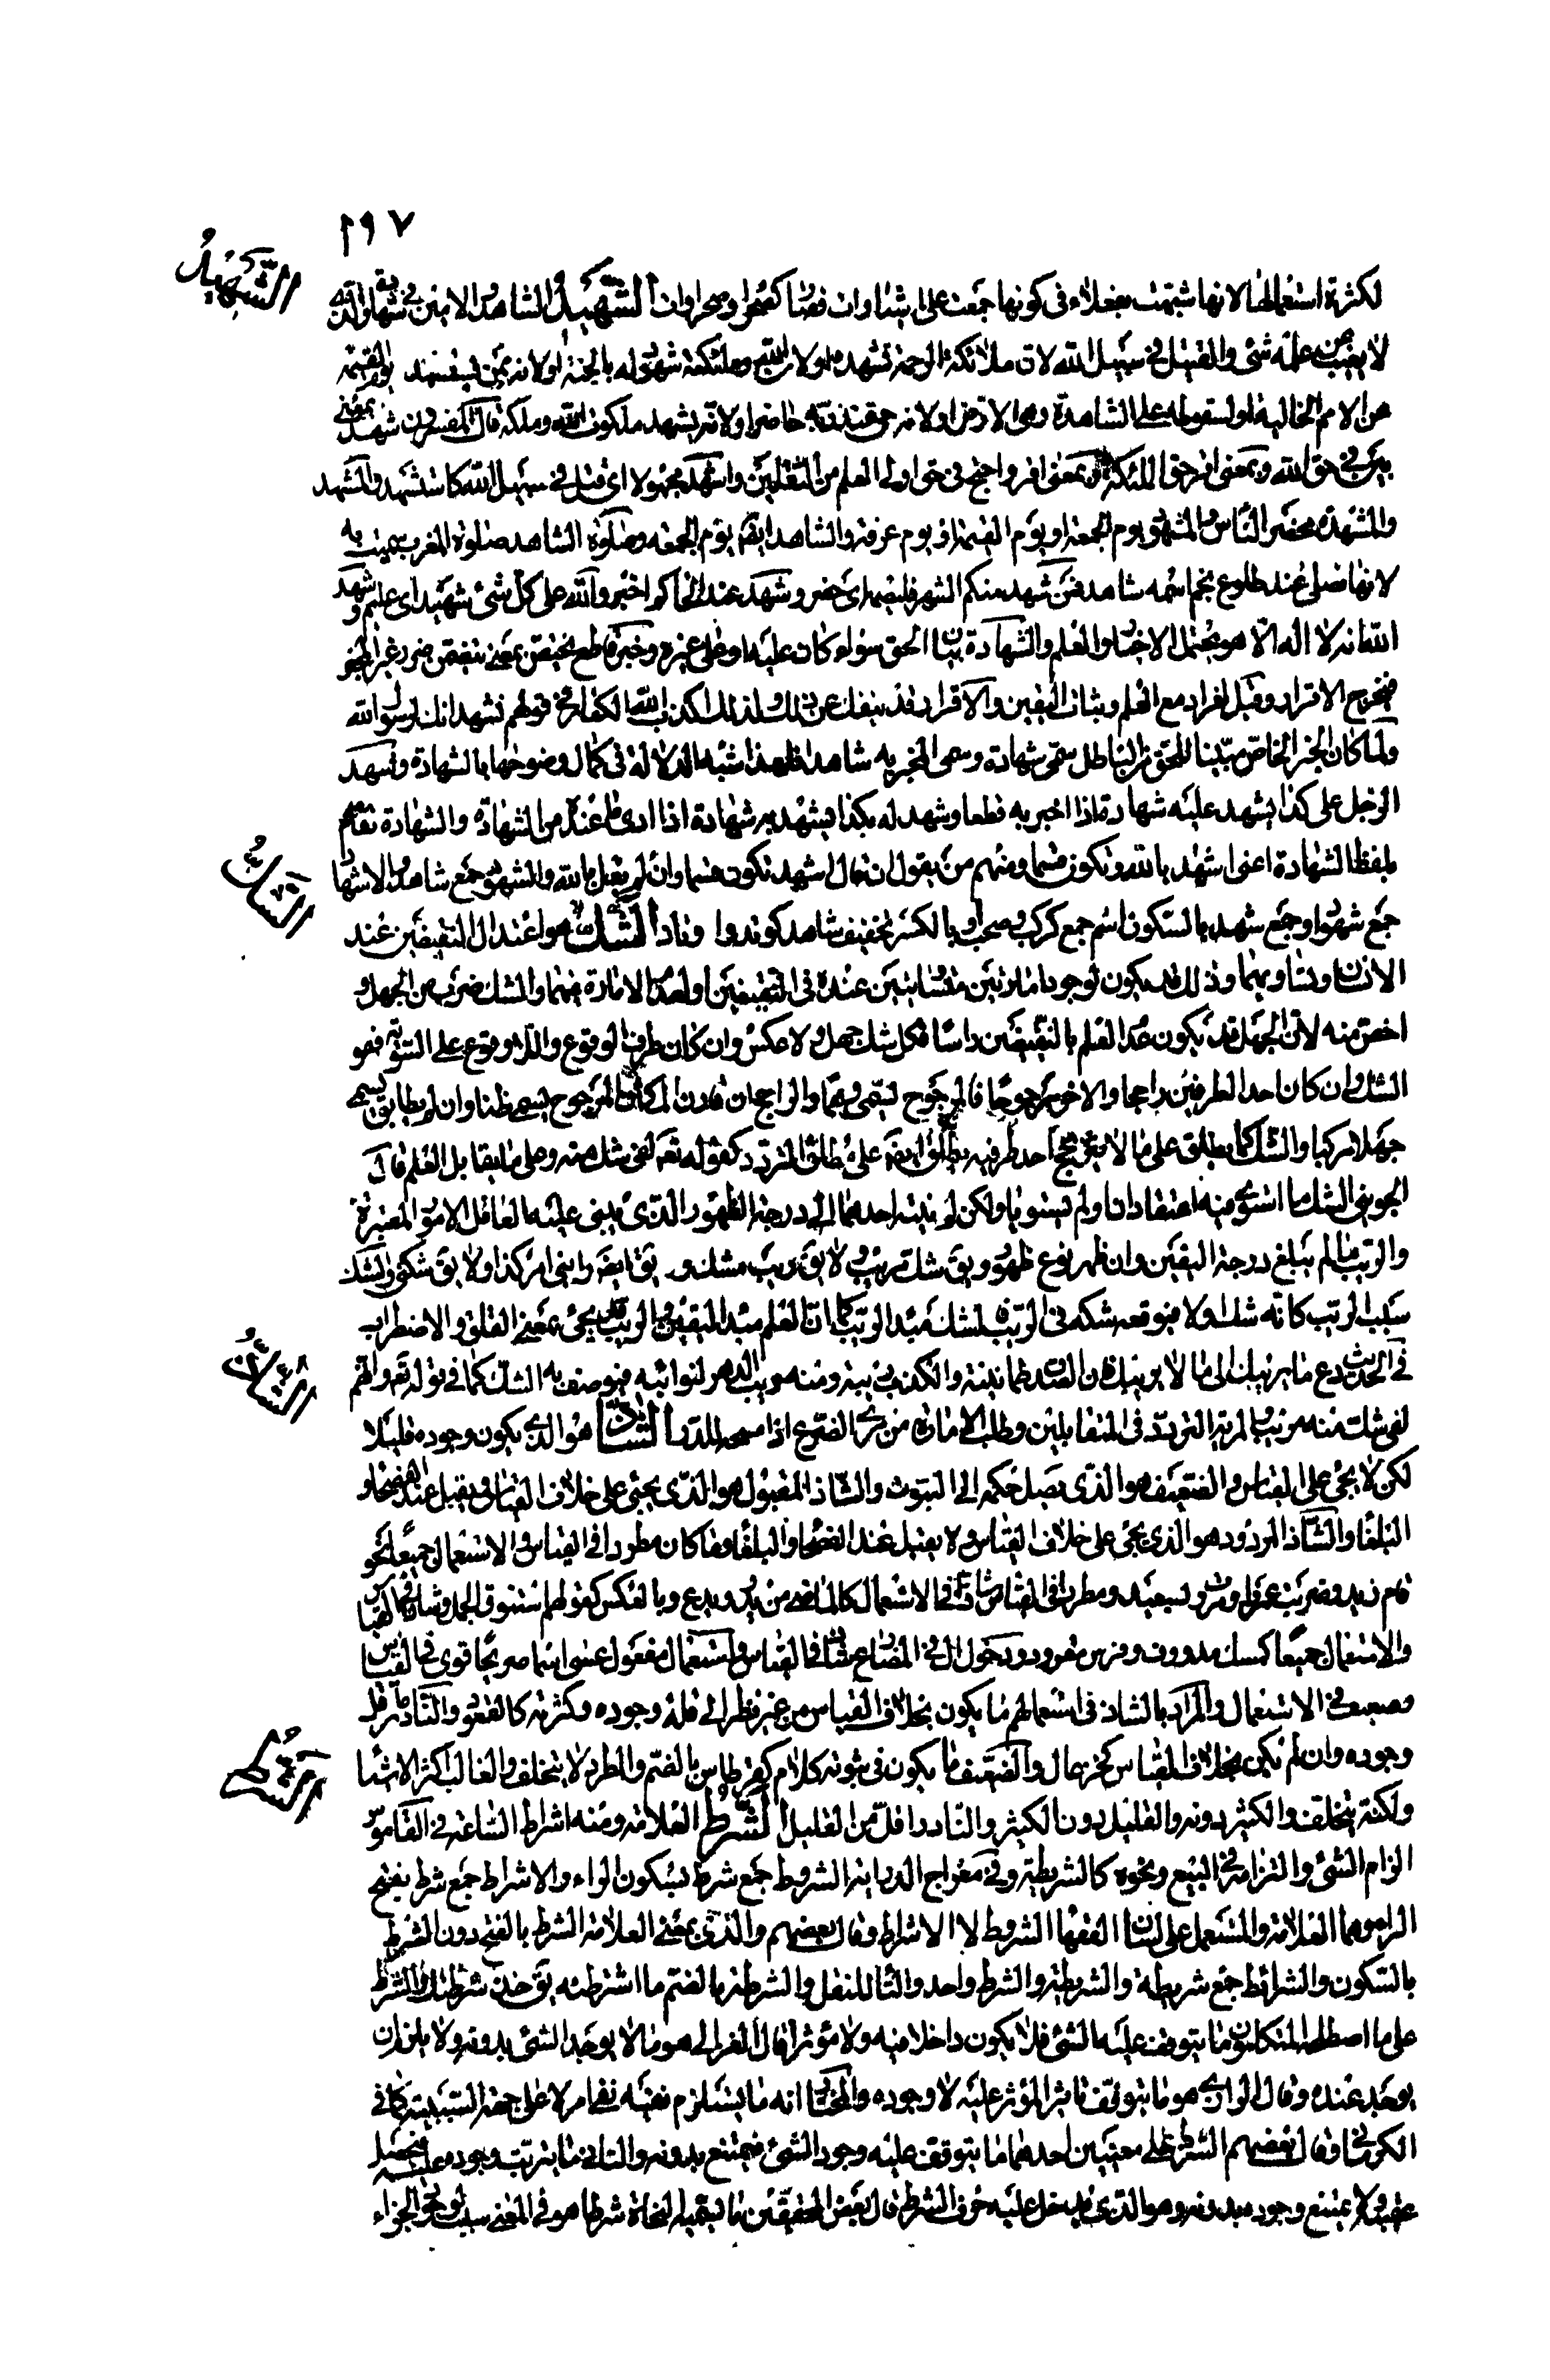 ١٩٧
الشهيد
لكثرة استعمالها لانها شبهت بفعلاء فى كونها جمعت على اشياوات فصار كصحرا وصحراوات الشهيد الشاهد والامين فى شهادة والذى
لا يغيب عن علمه شئ والقتيل فى سبيل الله لان ملائكة الرحمة تشهده او لان الله وملئكته شهود له بالجنة او لانه ممن يستشهد يوم القيمة
من الامم الخالية او لسقوطه على الشاهدة وهى الارض او لانه حى عند ربه حاضر او لانه يشهد ملكوت الله وملكه قال المفسرون شهد بمعنى
بين فى حق الله وبمعنى اقر فى حق الملئكة وبمعنى اقر واحتج فى حق اولى العلم من الثقلين واشهد مجهولا اى قتل فى سبيل الله كاستشهد والمشهد
والمشهدة محضر الناس والمشهود يوم الجمعة او يوم القيمة او يوم عرفة والشاهد ايضا يوم الجمعة وصلوة الشاهد صلوة المغرب سميت به
لانها تصلى عند طلوع نجم اسمه شاهد فمن شهد منكم الشهر فليصمه اى حضر وشهد عند الحاكم اخبر والله على كل شئ شهيد اى عليم وشهد
الله انه لا اله الا هو يحتمل الاخبار والعلم والشهادة بيان الحق سواء كان عليه او على غيره وخبر قاطع يختص بمعنى يتضمن ضرر غير المخبر
فيخرج الاقرار وقيل اقرار مع العلم وثبات اليقين والاقرار قد ينفك عن ذلك ولذلك اكذب الله الكفار فى قولهم نشهد انك لرسول الله
ولما كان الخبر الخاص مبينا للحق من الباطل سمى شهادة وسمى المخبر به شاهدا فلهذا شبه الدلالة فى كمال وضوحها بالشهادة وشهد
الرجل على كذا يشهد عليه شهادة اذا اخبر به قطعا وشهد له بكذا يشهد به شهادة اذا ادى ما عنده من الشهادة والشهادة تقام
بلفظ الشهادة اعنى اشهد بالله وتكون قسما ومنهم من يقول ان قال اشهد تكون قسما وان لم يقل بالله والشهود جمع شاهد والاشهاد
الشك
جمع شهود او جمع شهد بالسكون اسم جمع كركب وصحب او بالكسر تخفيف شاهد الشك هو اعتدال النقيضين عند
الانسان وتساويهما وذلك قد يكون لوجود امارتين متساويتين عنده فى النقيضين او لعدم الامارة فيهما والشك ضرب من الجهل و
اخص منه لان الجهل قد يكون عدم العلم بالنقيضين راسا فكل شك جهل ولا عكس وان كان طرف الوقوع واللاوقوع على السوية فهو
الشك وان كان احد الطرفين راجحا والاخر مرجوحا فالمرجوح يسمى وهما والراجح ان قارن امكان المرجوح يسمى ظنا وان لم يطابق يسمى
جهلا مركبا والشك كما يطلق على ما لا يترجح احد طرفيه يطلق ايضا على مطلق التردد كقوله تعه لفى شك منه وعلى ما يقابل العلم قال
الجوينى الشك ما استوى فيه اعتقادان او لم يستويا ولكن لم ينته احدهما الى درجة الظهور الذى يبنى عليه العاقل الامور المعتبرة
والريب ما لم يبلغ درجة اليقين وان ظهر نوع ظهور ويق شك مريب ولا يق ريب مشكك ويق ايضا رابنى امر كذا ولا يق شكنى والشك
الشاذ
سبب الريب كانه شك اولا فيوقعه شكه فى الريب فالشك مبدا الريب كما ان العلم مبدا اليقين والريب قد يجئ بمعنى القلق والاضطراب
فى الحديث دع ما يريبك الى ما لا يريبك فان الصدق طمانينة والكذب ريبة ومنه ريب الدهر لنوائبه فيوصف به الشك كما فى قوله تعه وانهم
لفى شك منه مريب والمرية التردد فى المتقابلين وطلب الامارة من مرى الضرع اذا مسحه للدر الشاذ هو الذى يكون وجوده قليلا
لكن لا يجئ على القياس والضعيف هو الذى يصل حكمه الى الثبوت والشاذ المقبول هو الذى يجئ على خلاف القياس ويقبل عند الفصحا و
البلغا والشاذ المردود هو الذى يجئ على خلاف القياس ولا يقبل عند الفصحا والبلغا وما كان مطردا فى القياس والاستعمال جميعا نحو
قام زيد وضربت عمرا ومررت بسعيد ومطرد فى القياس شاذ فى الاستعمال كالماضى من يذر ويدع وبالعكس كقولهم استنوق الجمل وشاذ فى القياس
والاستعمال جميعا كمسك مدووف وفرس مقوود ودخول ال فى المضارع شاذ فى القياس واستعمال مفعول عسى اسما صريحا قوى فى القياس
وضعيف فى الاستعمال والمراد بالشاذ فى استعمالهم ما يكون بخلاف القياس من غير نظر الى قلة وجوده وكثرته كالقعود والنادر ما قل
الشرط
وجوده وان لم يكن بخلاف القياس كخزعال والضعيف ما يكون فى ثبوته كلام كقرطاس بالضم والمطرد لا يتخلف والغالب اكثر الاشيا
ولكنه يتخلف والكثير دونه والقليل دون الكثير والنادر اقل من القليل الشرط العلامة ومنه اشراط الساعة فى القاموس
الزام الشئ والتزامه فى البيع ونحوه كالشريطة وفى معراج الدراية الشروط جمع شرط بسكون الراء والاشراط جمع شرط بفتح
الراء وهما العلامة والمستعمل على لسان الفقها الشروط لا الاشراط وقال بعضهم والذى بمعنى العلامة الشرط بالفتح دون الشرط
بالسكون والشرائط جمع شريطة والشريطة والشرط واحد والتا للنقل والشرطة بالضم ما اشترطته يق خذ شرطتك والشرط
على ما اصطلحه المتكلمون ما يتوقف عليه الشئ فلا يكون داخلا فيه ولا مؤثرا قال الغزالى هو ما لا يوجد الشئ بدونه ولا يلزم ان
يوجد عنده وقال الرازى هو ما يتوقف تاثير المؤثر عليه لا وجوده والمختار انه ما يستلزم نفيه نفى امر لا على جهة السببية كما فى
الكرمانى وقال بعضهم الشرط على معنيين احدهما ما يتوقف عليه وجود الشئ فيمتنع بدونه والثانى ما يترتب وجوده عليه فيحصل
عقيبه ولا يمتنع وجوده بدونه وهو الذى يدخل عليه حرف الشرط قال بعض المحققين ما يسميه النحاة شرطا هو فى المعنى سبب لوجود الجزاء